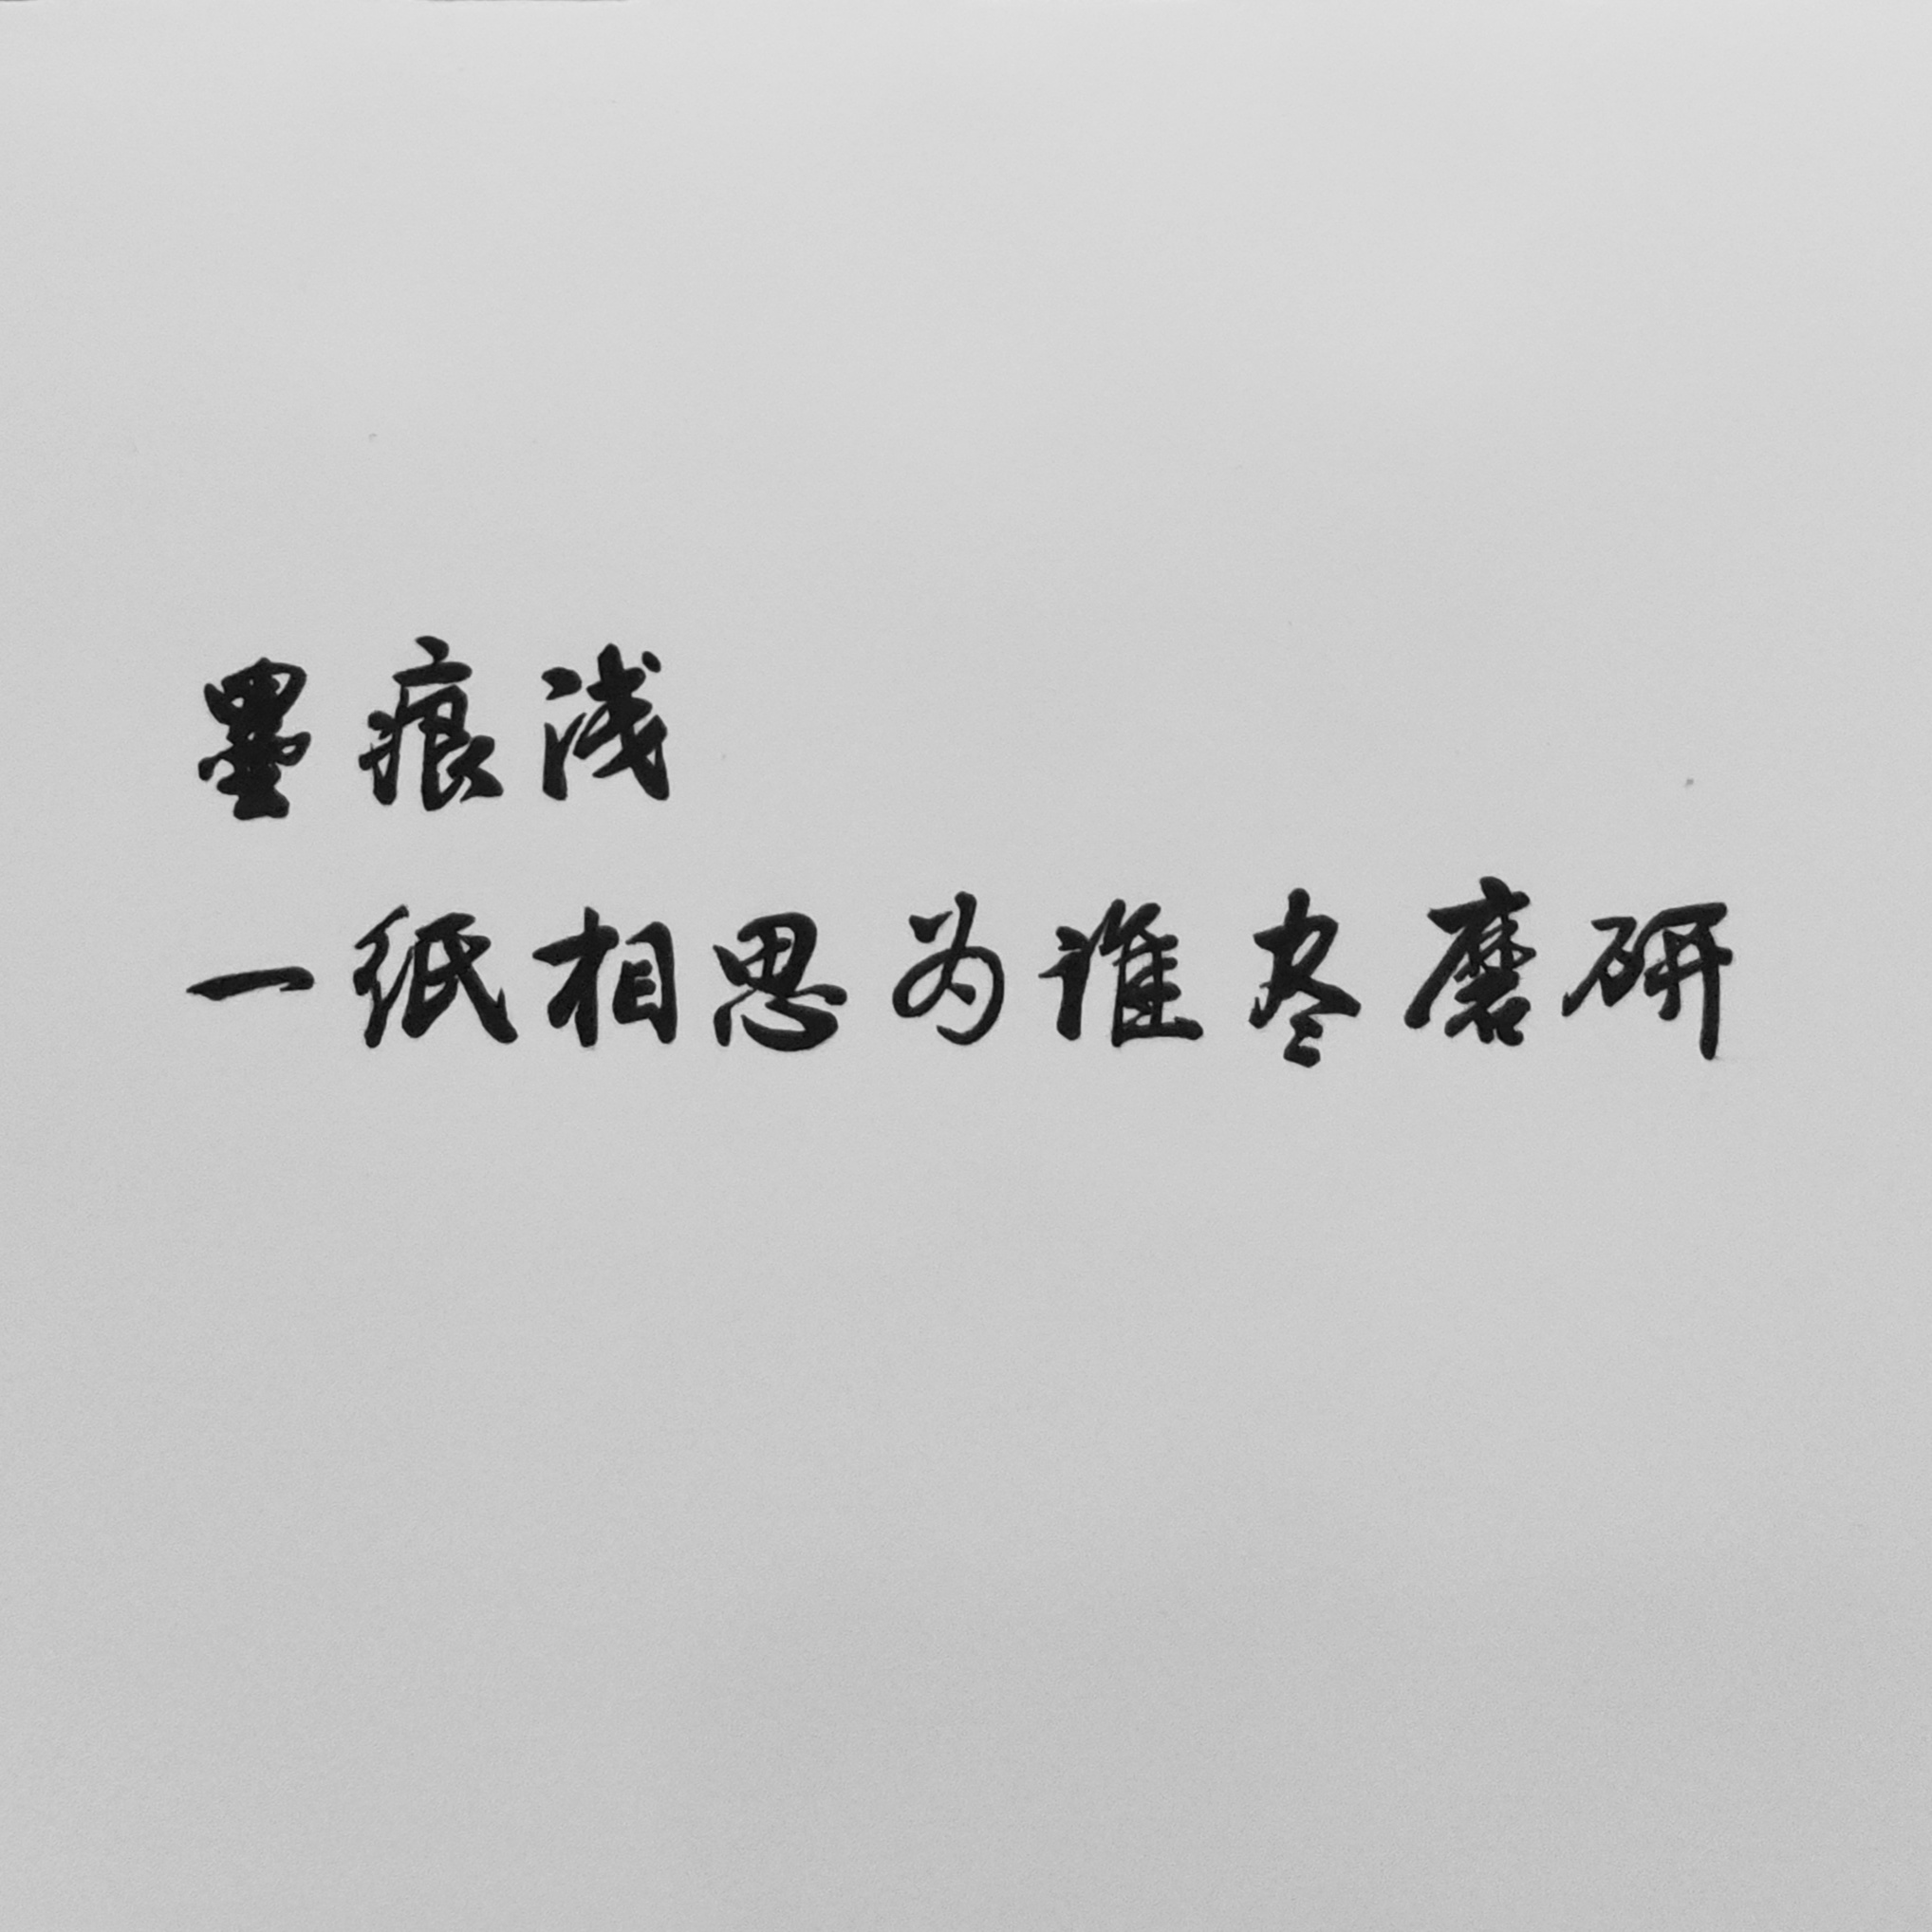 墨痕浅
一纸相思为谁尽磨研